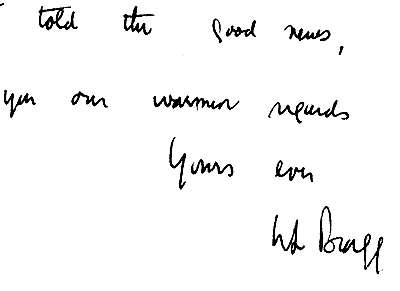 told the good news,
you our warmest regards
Yours ever
WL Bragg